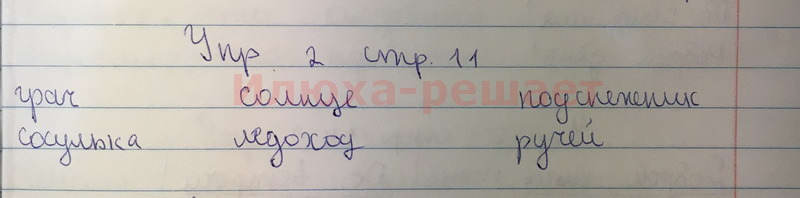 Упр 2 стр. 11
Илюха-решает
грач солнце подснежник
сосулька ледоход ручей